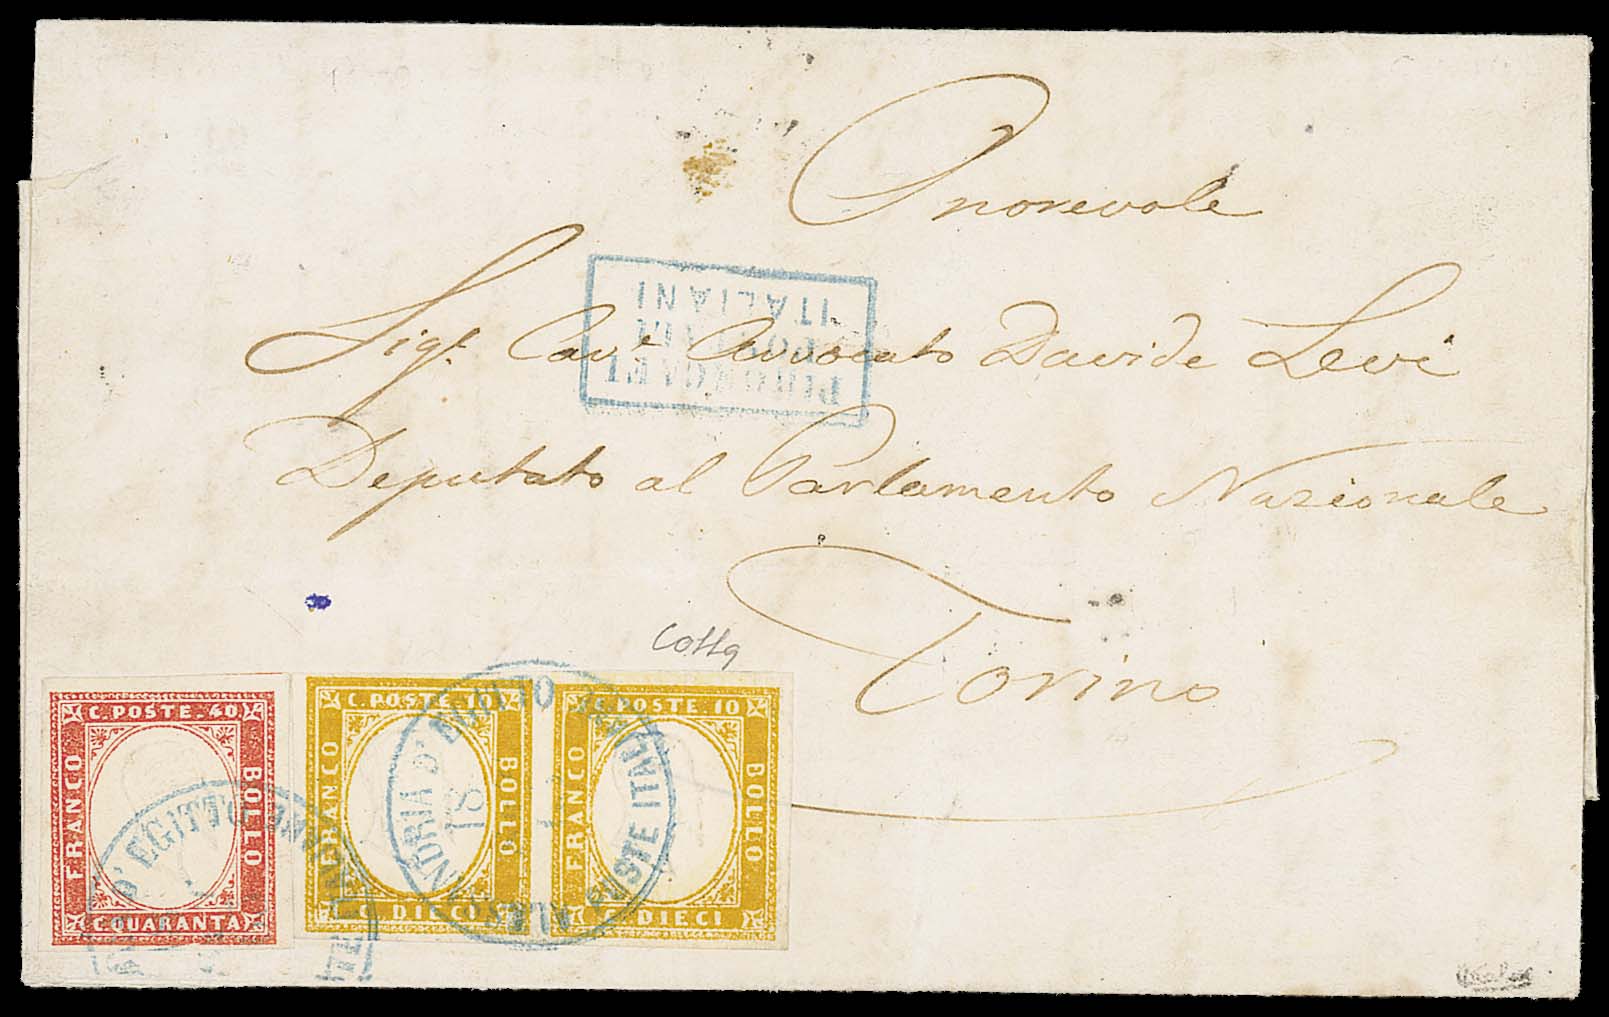 Onorevole
Sigr. Cave Avvocato Davide Levi
Deputato al Parlamento Nazionale
Torino
PIROSCAFI
POSTALI
ITALIANI
Colla
C. POSTE. 40
FRANCO
BOLLO
C. QUARANTA
C. POSTE. 10
FRANCO
BOLLO
C. DIECI
C. POSTE. 10
FRANCO
BOLLO
C. DIECI
ALESSANDRIA D'EGITTO POSTE ITALIANE
D'EGITTO